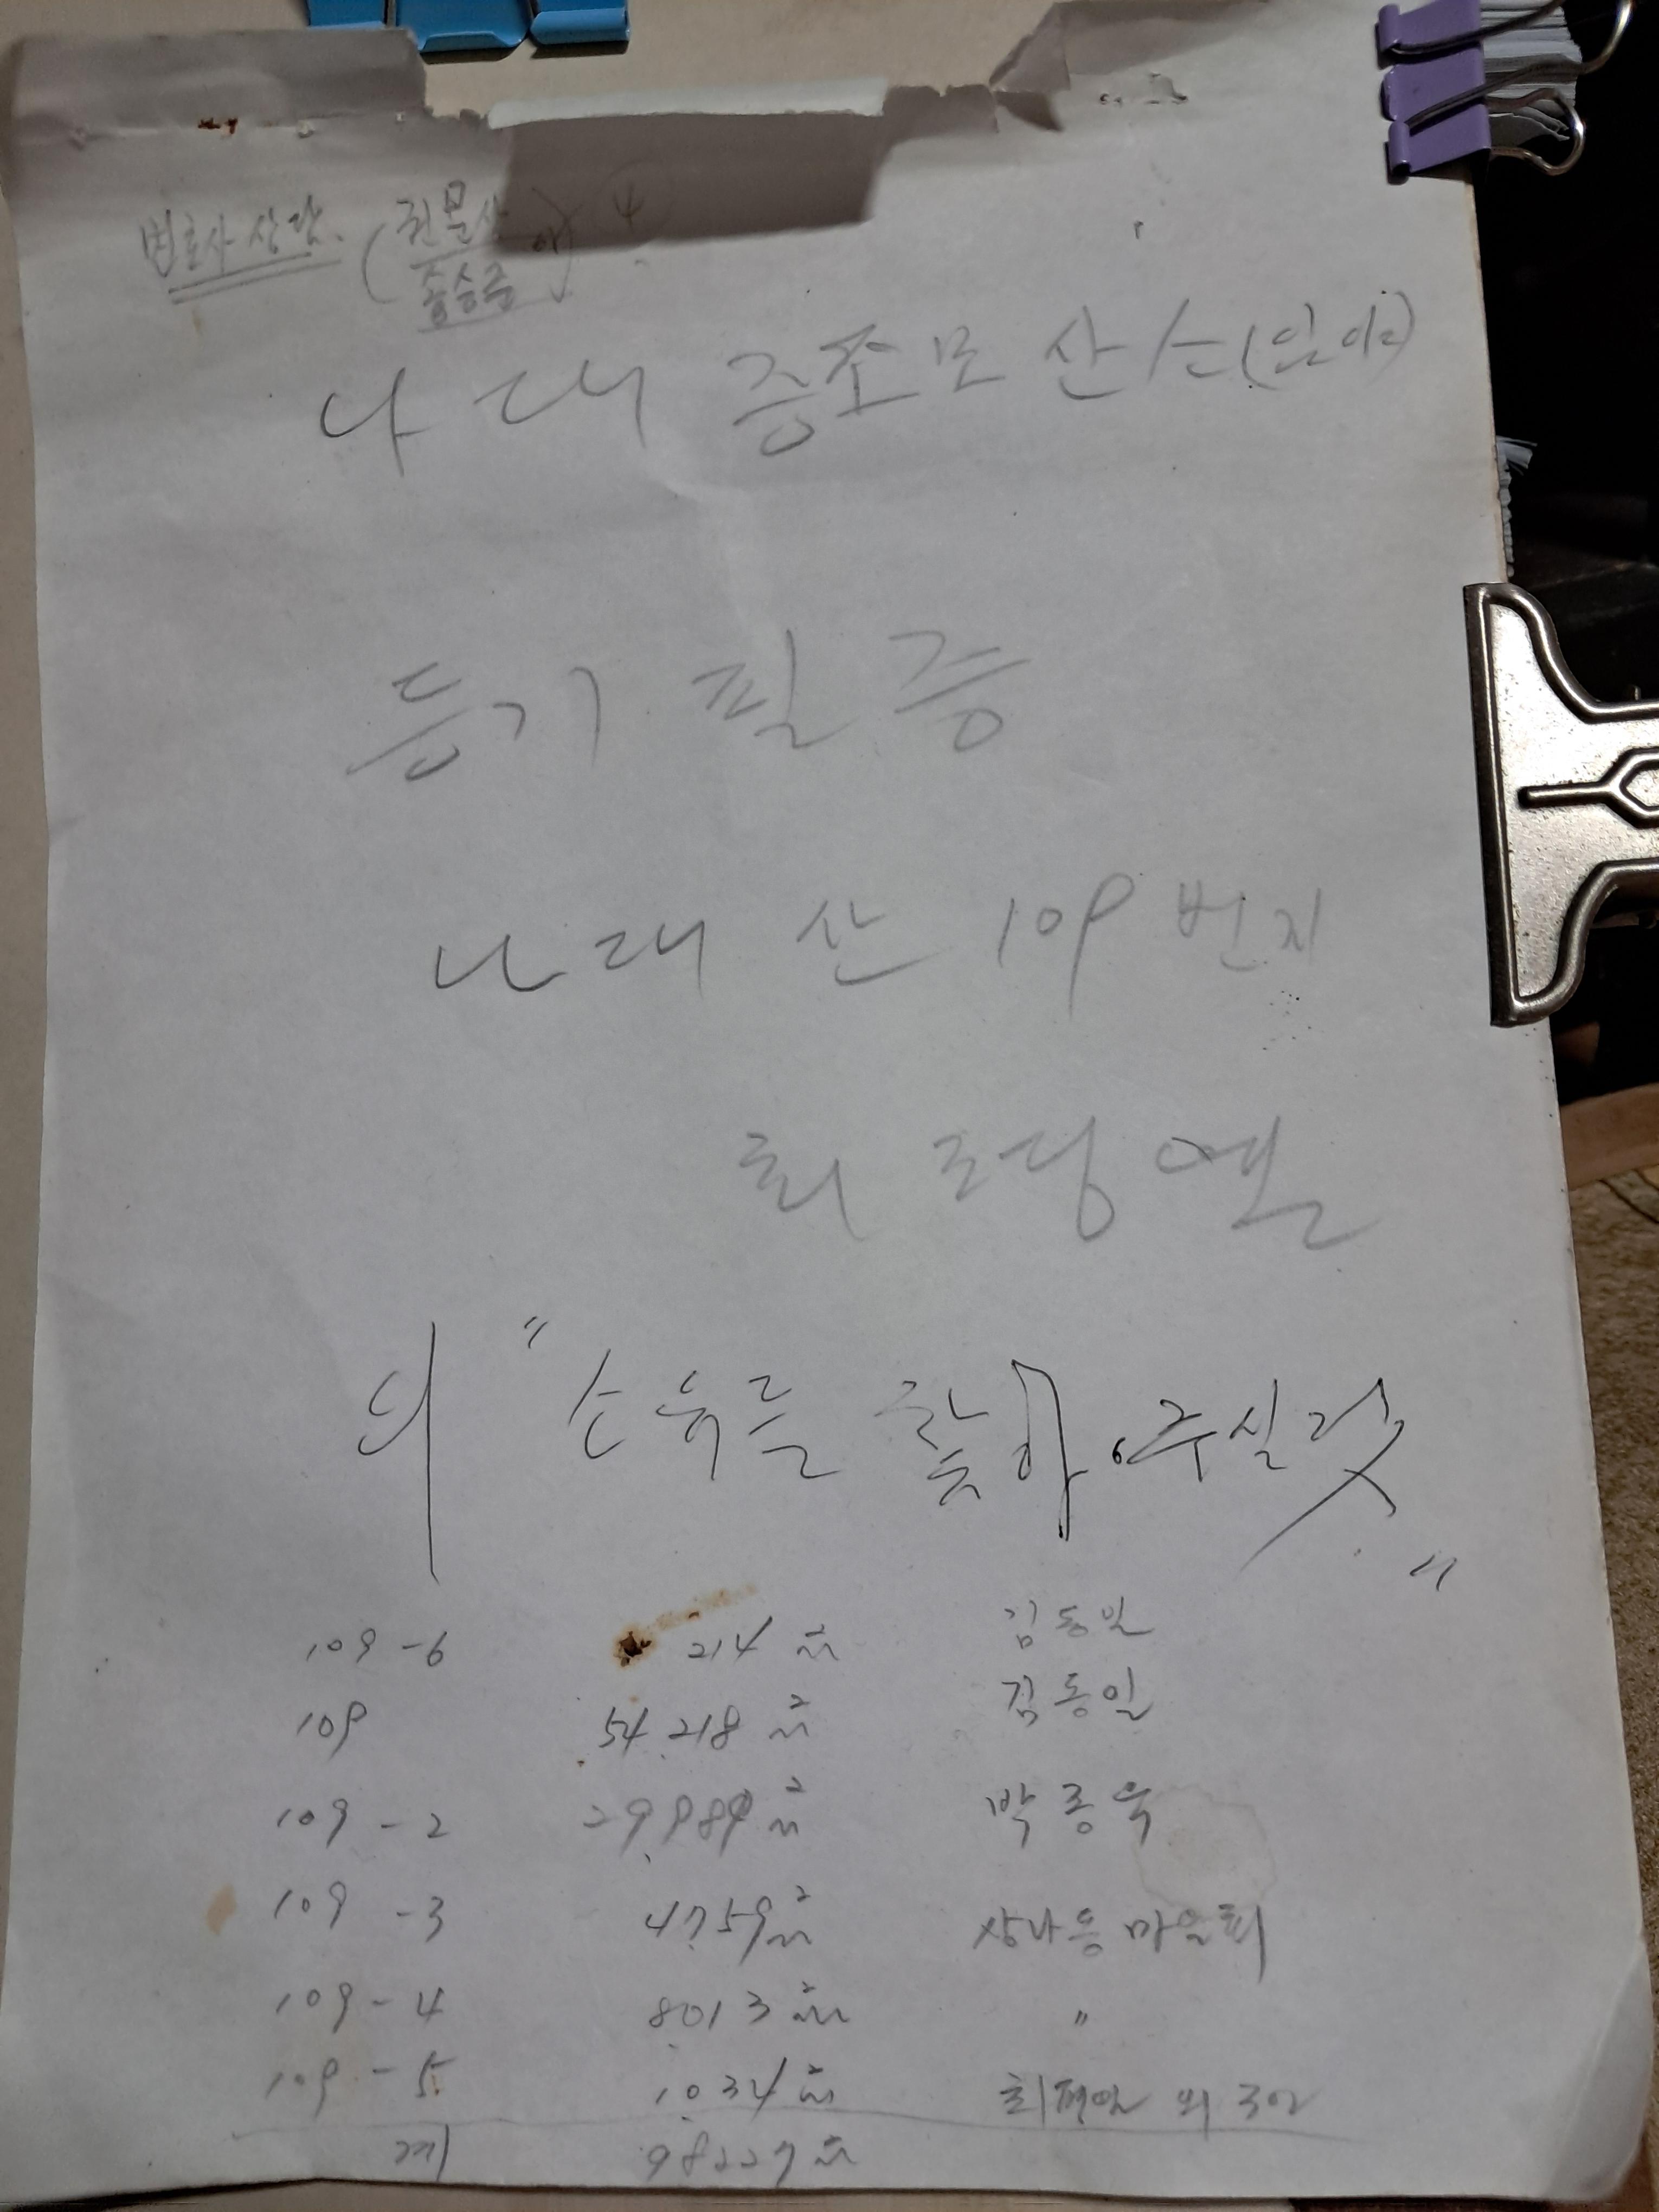 변호사 상담. (권문상 ④
송승훈
나대 증조모 산소(임야)
등기필증
나대 산 109 번지
최정열
의 "소유를 찾아 주실 것"
109-6 214㎡ 김동일
109 54,218㎡ 김동일
109-2 29,989㎡ 박종욱
109-3 4759㎡ 상나동 마을회
109-4 8013㎡ "
109-5 1034㎡ 외 3인
계 98227㎡